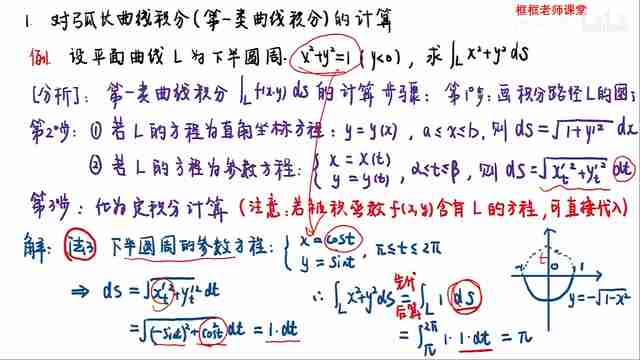 1. 对弧长曲线积分(第一类曲线积分)的计算
框框老师课堂
例1. 设平面曲线 L 为下半圆周. x²+y²=1 (y<0), 求 ∫_L x²+y² ds
[分析]: 第一类曲线积分 ∫_L f(x,y) ds 的计算步骤: 第1°步: 画积分路径L的图;
第2°步: ① 若 L 的方程为直角坐标方程: y=y(x), a≤x≤b, 则 ds=√(1+y'²) dx
② 若 L 的方程为参数方程: { x=x(t) y=y(t), α≤t≤β, 则 ds=√(x'_t²+y'_t²) dt
第3°步: 化为定积分计算 (注意: 若被积函数 f(x,y) 含有 L 的方程, 可直接代入)
解: 法1) 下半圆周的参数方程: { x=cost y=sint, π≤t≤2π
⇒ ds=√(x'_t²+y'_t²) dt
=√((-sint)²+cos²t) dt = 1·dt
∴ ∫_L x²+y² ds = ∫_L 1 ds
先代 后算
= ∫_π^{2π} 1·1·dt = π
-1 0 1 t
y=-√(1-x²)